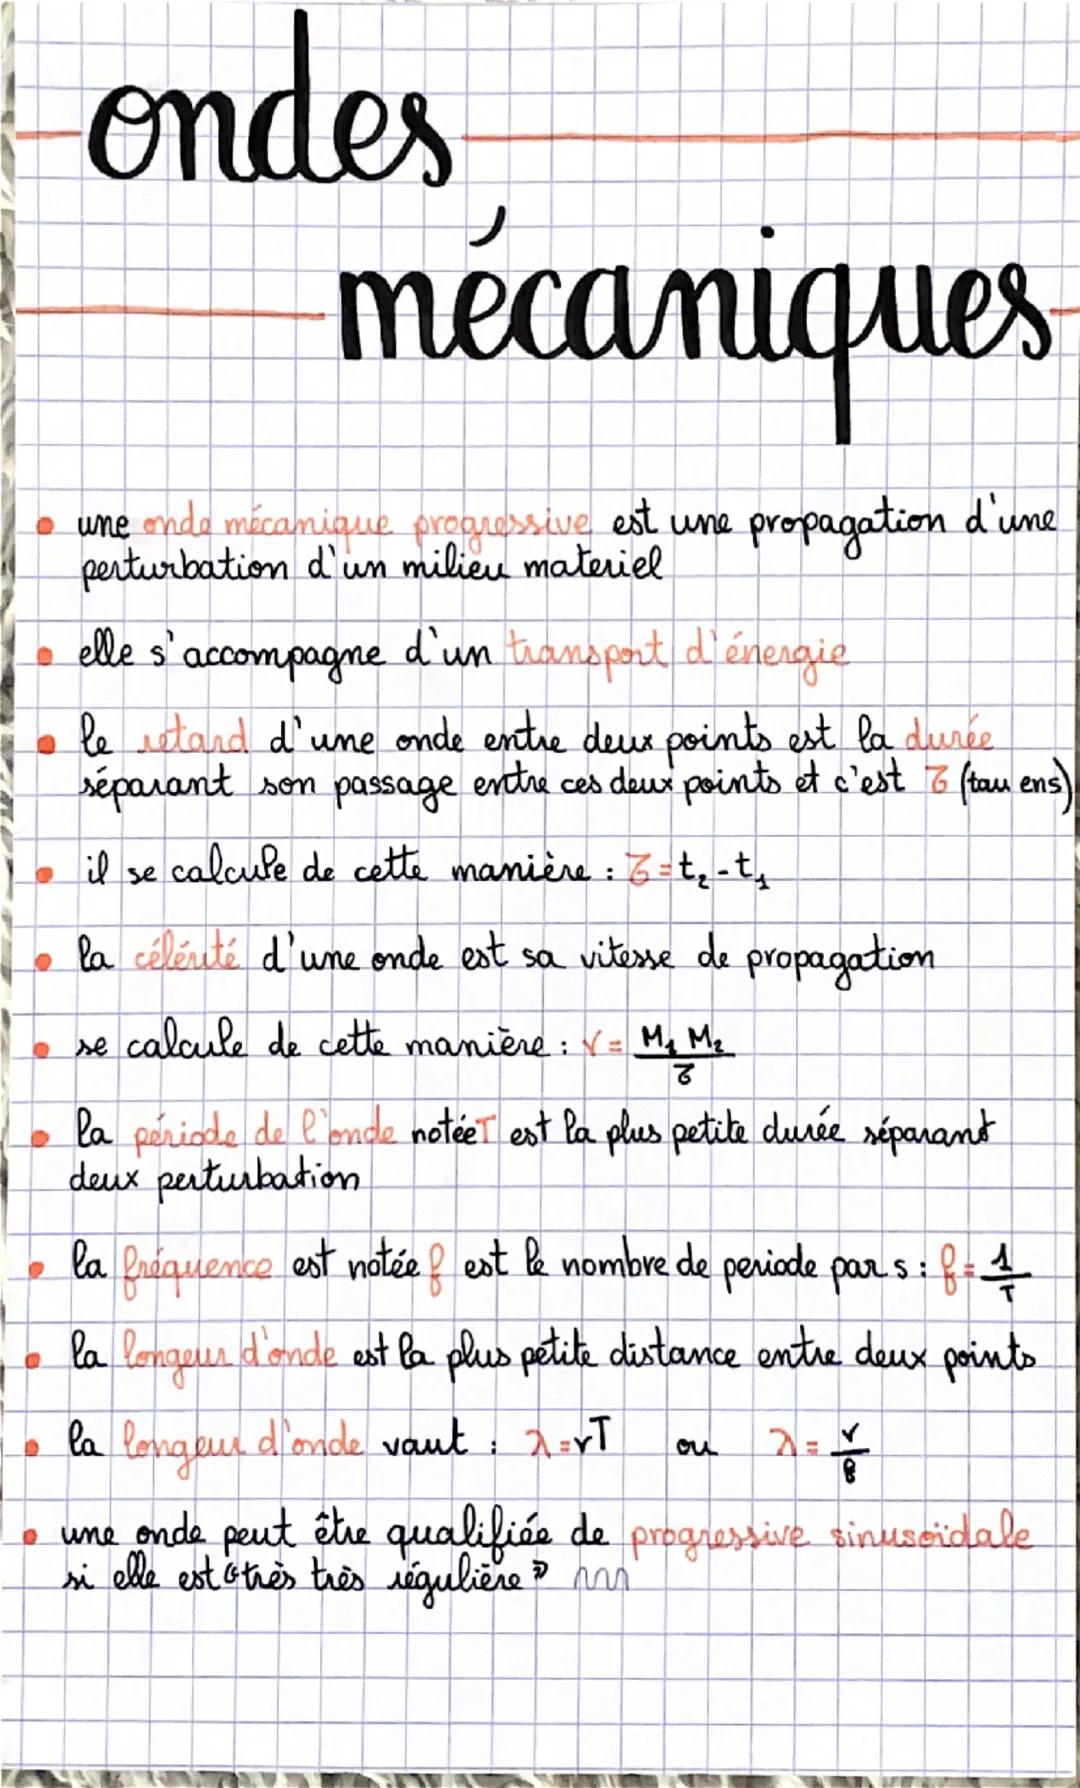 ondes
mécaniques
• une onde mécanique progressive est une propagation d'une
perturbation d'un milieu materiel
• elle s'accompagne d'un transport d'énergie
• le retard d'une onde entre deux points est la durée
séparant son passage entre ces deux points et c'est τ (tau en s)
• il se calcule de cette manière : τ = t₂ - t₁
• la célérité d'une onde est sa vitesse de propagation
• se calcule de cette manière : v = M₁ M₂ / τ
• la période de l'onde notée T est la plus petite durée séparant
deux perturbation
• la fréquence est notée f est le nombre de periode par s : f = 1/T
• la longeur d'onde est la plus petite distance entre deux points
• la longeur d'onde vaut : λ = vT ou λ = v/f
• une onde peut être qualifiée de progressive sinusoïdale
si elle est «très très régulière»